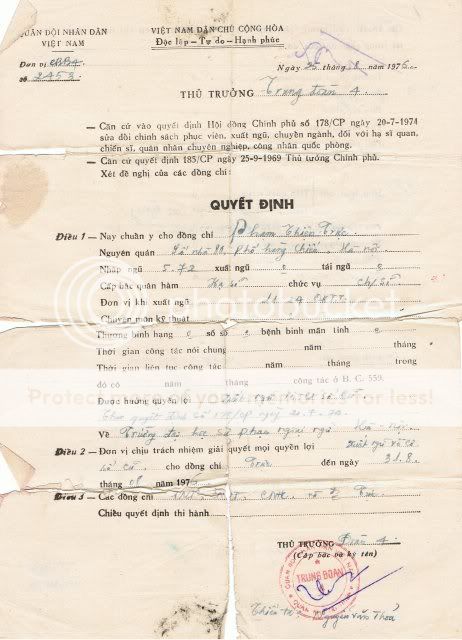 QUÂN ĐỘI NHÂN DÂN
VIỆT NAM
VIỆT NAM DÂN CHỦ CỘNG HÒA
Độc lập – Tự do – Hạnh phúc
Đơn vị
Số 2453
Ngày 25 tháng 8 năm 1976
THỦ TRƯỞNG Trung đoàn 4
– Căn cứ vào quyết định Hội đồng Chính phủ số 178/CP ngày 20-7-1974
sửa đổi chính sách phục viên, xuất ngũ, chuyển ngành, đối với hạ sĩ quan,
chiến sĩ, quân nhân chuyên nghiệp, công nhân quốc phòng.
– Căn cứ quyết định 185/CP ngày 25-9-1969 Thủ tướng Chính phủ.
Xét đề nghị của các đồng chí:
QUYẾT ĐỊNH
Điều 1 – Nay chuẩn y cho đồng chí Phạm Thiên Trúc
Nguyên quán Số nhà 20, Phố hàng Chiếu, Hà nội
Nhập ngũ 5.72 xuất ngũ tái ngũ
Cấp bậc quân hàm Hạ sĩ chức vụ ch/sĩ
Đơn vị khi xuất ngũ
Chuyên môn kỹ thuật
Thương binh hạng số sổ bệnh binh mãn tính
Thời gian công tác nói chung năm tháng
Thời gian liên tục công tác năm tháng trong
đó có năm tháng công tác ở B. C. 559.
Được hưởng quyền lợi
Theo quyết định số 178/CP ngày 20.7.74
Về Trường đại học sư phạm ngoại ngữ Hà Nội
Điều 2 – Đơn vị chịu trách nhiệm giải quyết mọi quyền lợi xuất ngũ
cho đồng chí Trúc đến ngày 31.8
tháng 08 năm 1976
Điều 3 – Các đồng chí
Chiếu quyết định thi hành
THỦ TRƯỞNG Đoàn 4
(Cấp bậc và ký tên)
TRUNG ĐOÀN
Thiếu tá Nguyễn Văn Thoả
photobucket
Protect more of your memories for less!